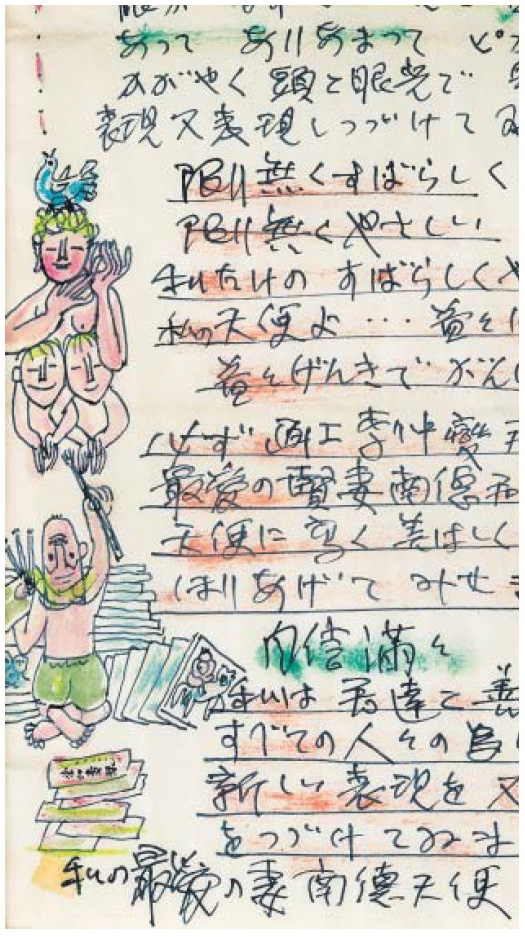 あって ありあまって ピカ
かがやく 頭と眼光で
表現又表現しつづけて
限り無くすばらしく
限り無くやさしい
私だけの すばらしくや
私の天使よ … 益々
益々げんきで がん
必ず 画工 李仲燮
最愛の賢妻南徳
天使に 高く 美ばしく
ほりあげて みせ
内信満々
私は 君達と 善
すべての人々の為
新しい 表現を 又
をつづけてみま
私の最愛の妻南徳天使